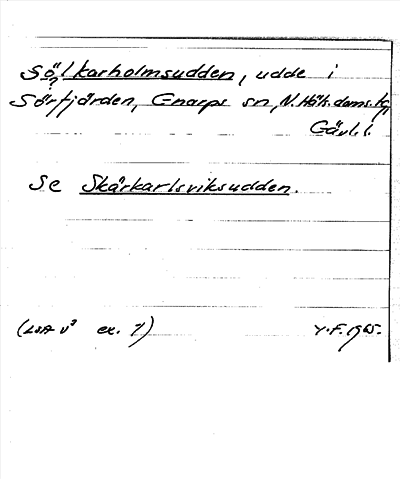 Sölkarholmsudden, udde i
?
Sörfjärden, Gnarps sn, N. Häls. doms.
Gävl. l.
Se Skärkarlsviksudden.
(LSA V³ ex. 7)
Y.F. 1965.